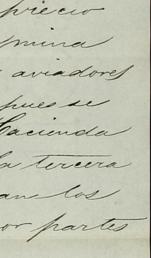 precio
mina
aviadores
pues se
Hacienda
la tercera
an los
or partes